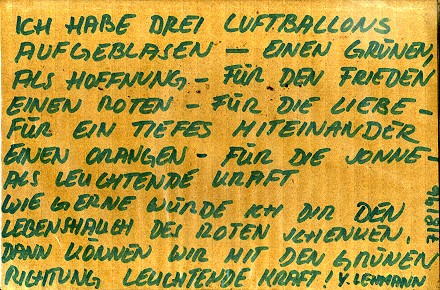 ICH HABE DREI LUFTBALLONS
AUFGEBLASEN — EINEN GRÜNEN,
ALS HOFFNUNG - FÜR DEN FRIEDEN
EINEN ROTEN - FÜR DIE LIEBE -
FÜR EIN TIEFES MITEINANDER
EINEN ORANGEN - FÜR DIE SONNE -
ALS LEUCHTENDE KRAFT
WIE GERNE WÜRDE ICH DIR DEN
LEBENSHAUCH DES ROTEN SCHENKEN,
DANN KÖNNEN WIR MIT DEN GRÜNEN
RICHTUNG LEUCHTENDE KRAFT! Y. LEHMANN